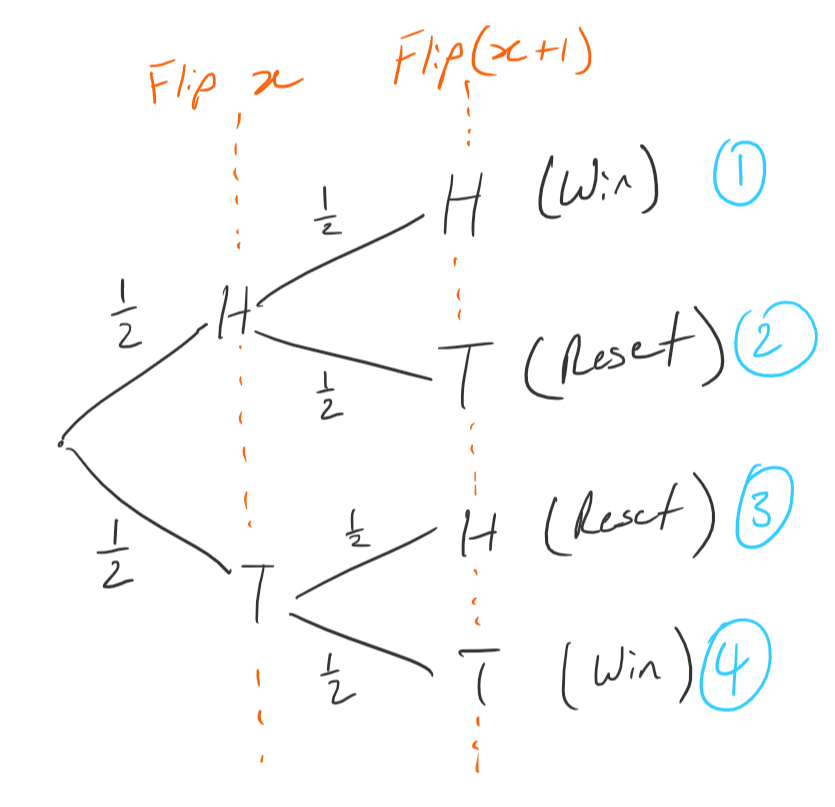 Flip x
Flip(x+1)
1/2
H (Win) ①
1/2
H
T (Reset) ②
1/2
1/2
1/2
H (Reset) ③
T
1/2
T (Win) ④